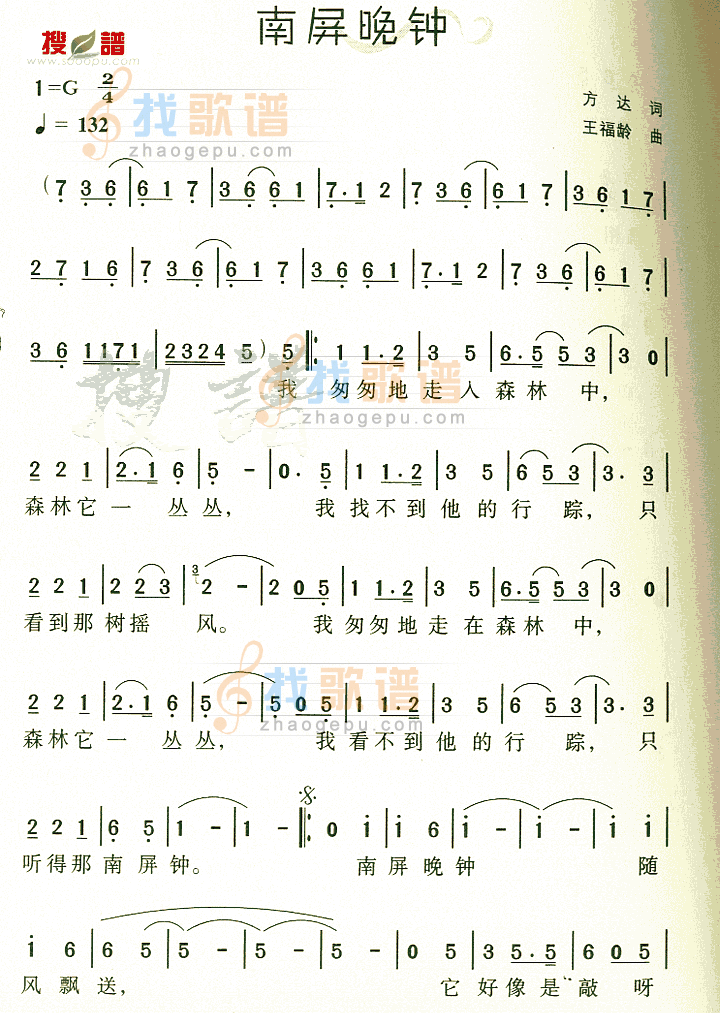 南屏晚钟
搜谱
www.sooopu.com
1=G 2/4
♩= 132
方达 词
王福龄 曲
找歌谱
zhaogepu.com
(7 3 6 | 6 1 7 | 3 6 6 1 | 7·1 2 | 7 3 6 | 6 1 7 | 3 6 1 7 |
2 7 1 6 | 7 3 6 | 6 1 7 | 3 6 6 1 | 7·1 2 | 7 3 6 | 6 1 7 |
3 6 1171 | 2324 5) 5 ‖: 1 1·2 | 3 5 | 6·5 5 3 | 3 0 |
我 匆匆地走入森林中,
搜谱
找歌谱
zhaogepu.com
2 2 1 | 2·1 6 | 5 - | 0· 5 | 1 1·2 | 3 5 | 6 5 3 | 3· 3 |
森林它一丛丛, 我找不到他的行踪, 只
2 2 1 | 2 2 3 | 3 2 - | 2 0 5 | 1 1·2 | 3 5 | 6·5 5 3 | 3 0 |
看到那树摇风。 我匆匆地走在森林中,
找歌谱
zhaogepu.com
2 2 1 | 2·1 6 | 5 - | 5 0 5 | 1 1·2 | 3 5 | 6 5 3 | 3· 3 |
森林它一丛丛, 我看不到他的行踪, 只
2 2 1 | 6 5 | 1 - | 1 - ‖: 0 i | i 6 | i - | i i |
听得那南屏钟。 南屏晚钟 随
i 6 | 6 5 | 5 - | 5 - | 5 - | 0 5 | 3 5·5 | 6 0 5 |
风飘送, 它好像是敲呀